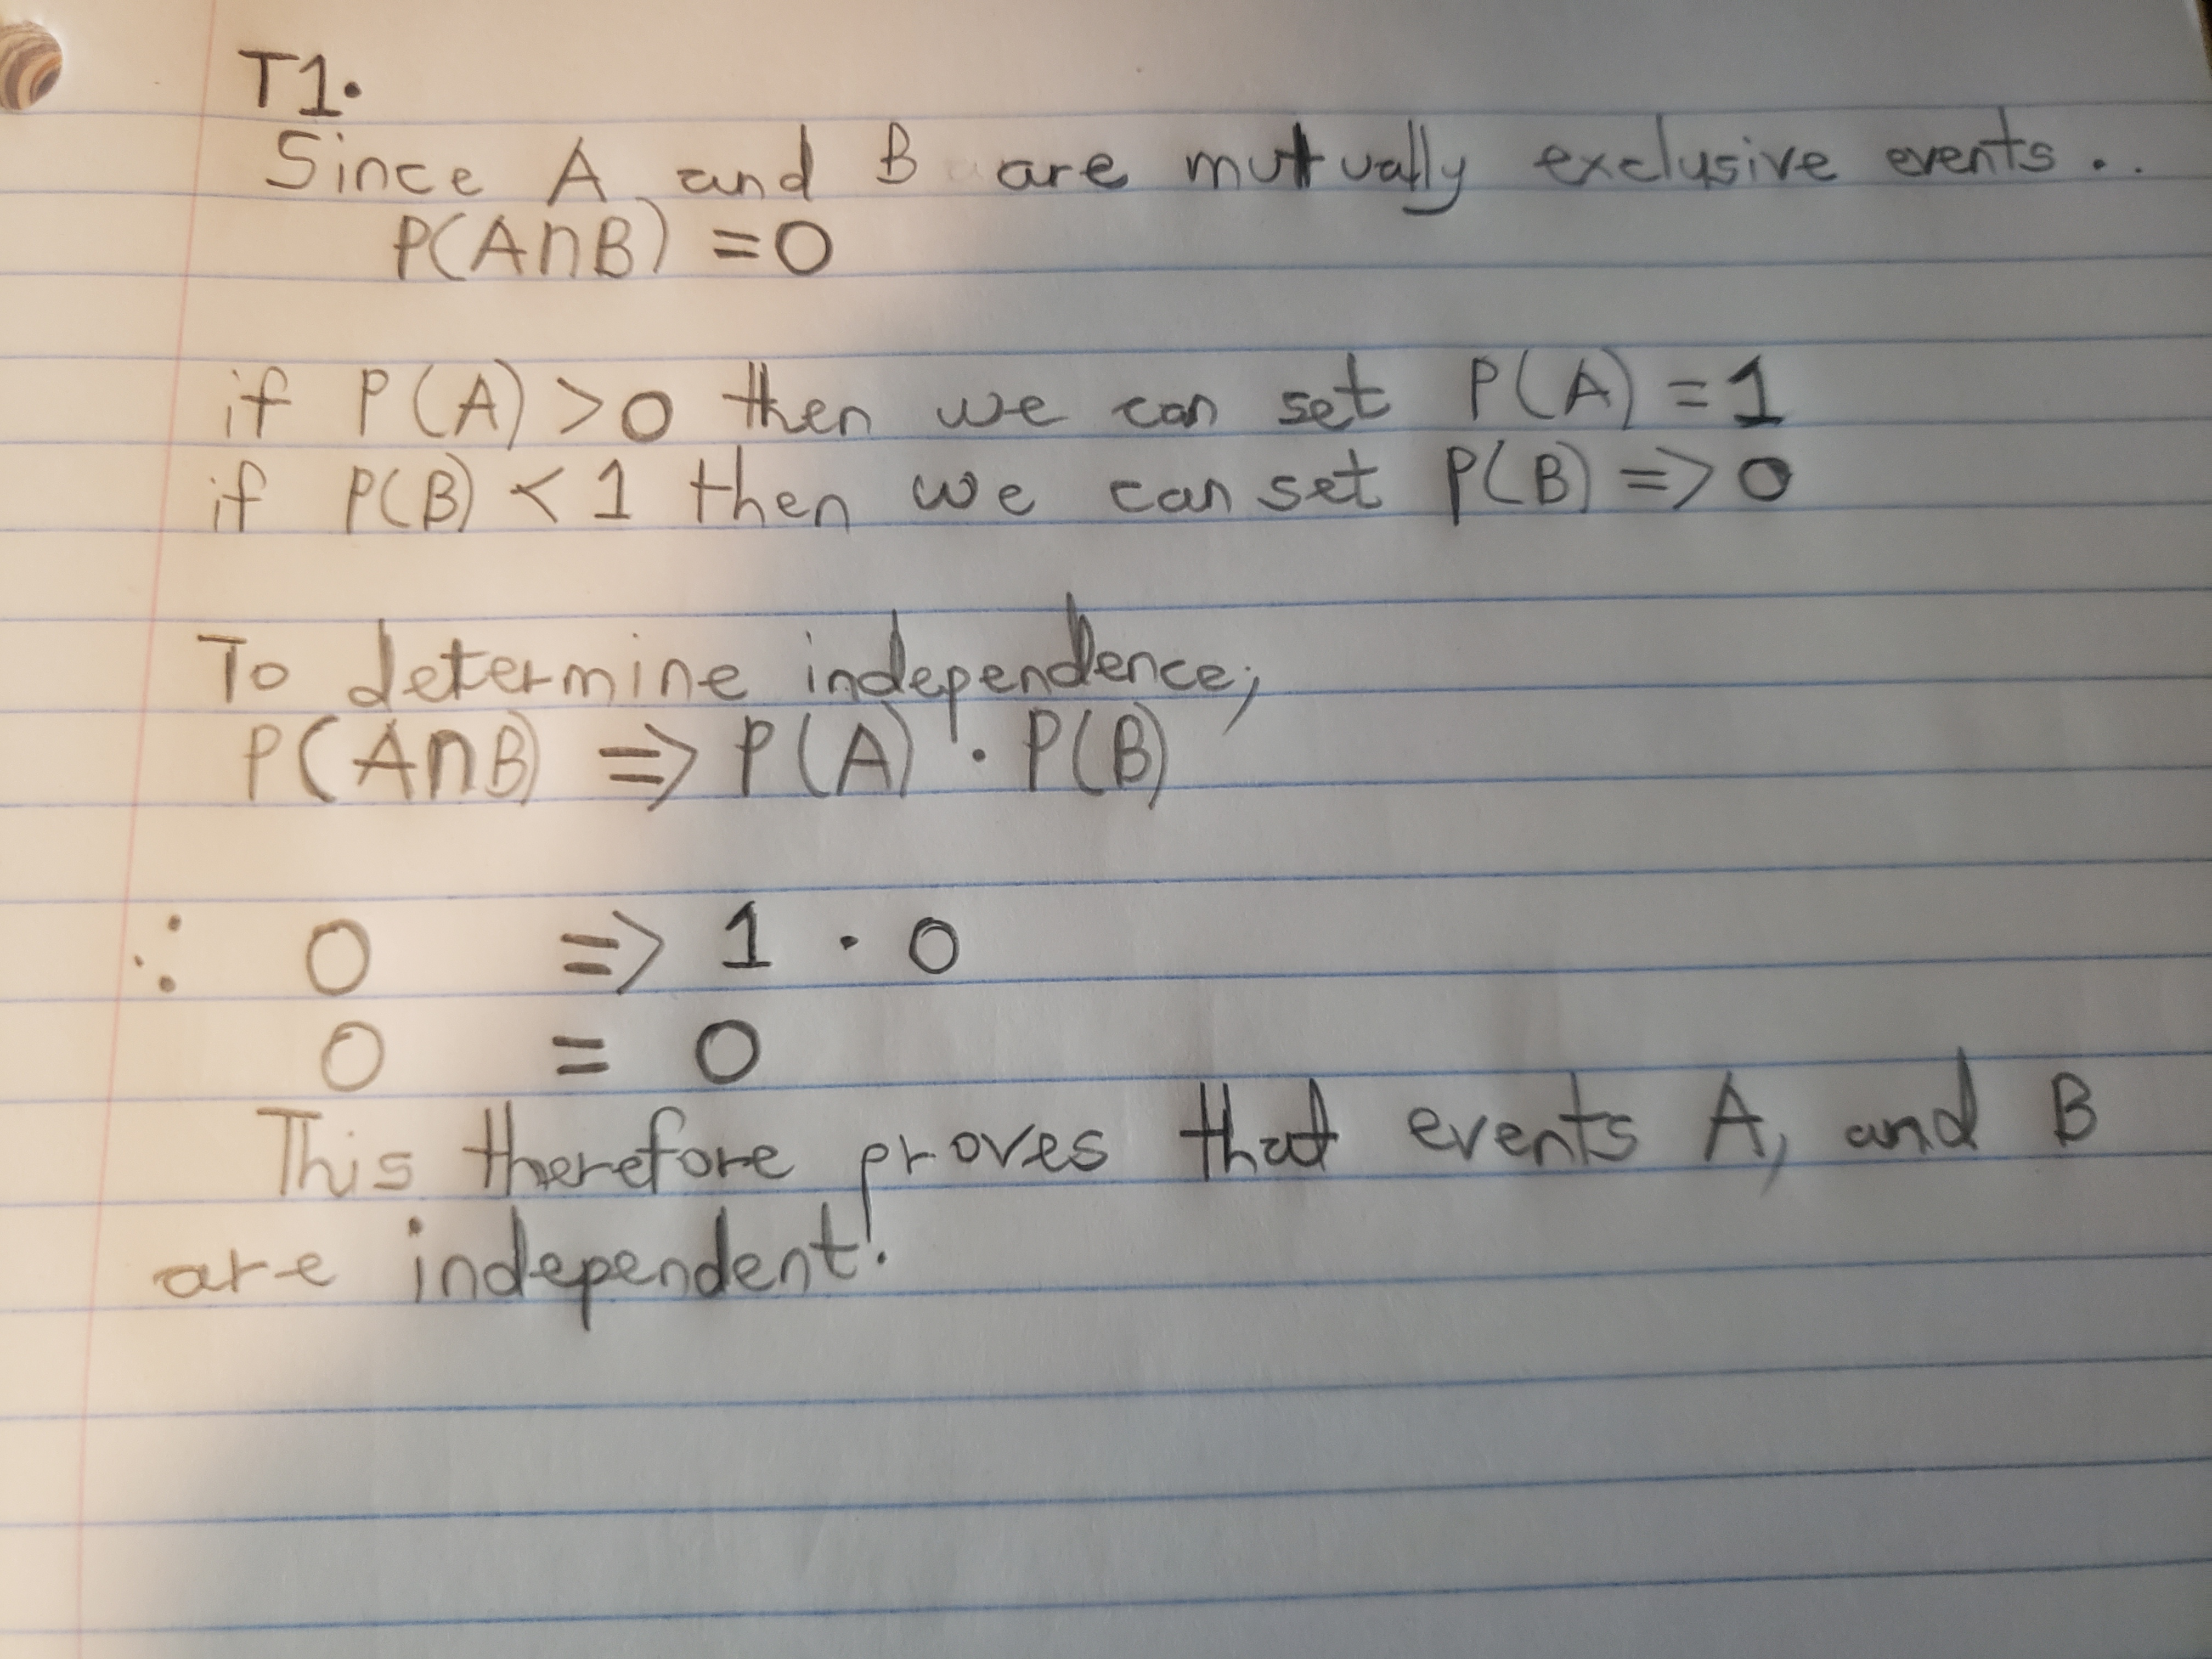 T1.
Since A and B are mutually exclusive events..
P(A∩B) = 0
if P(A) > 0 then we can set P(A) = 1
if P(B) < 1 then we can set P(B) => 0
To determine independence;
P(A∩B) => P(A) · P(B)
∴ 0 => 1 · 0
0 = 0
This therefore proves that events A, and B
are independent!